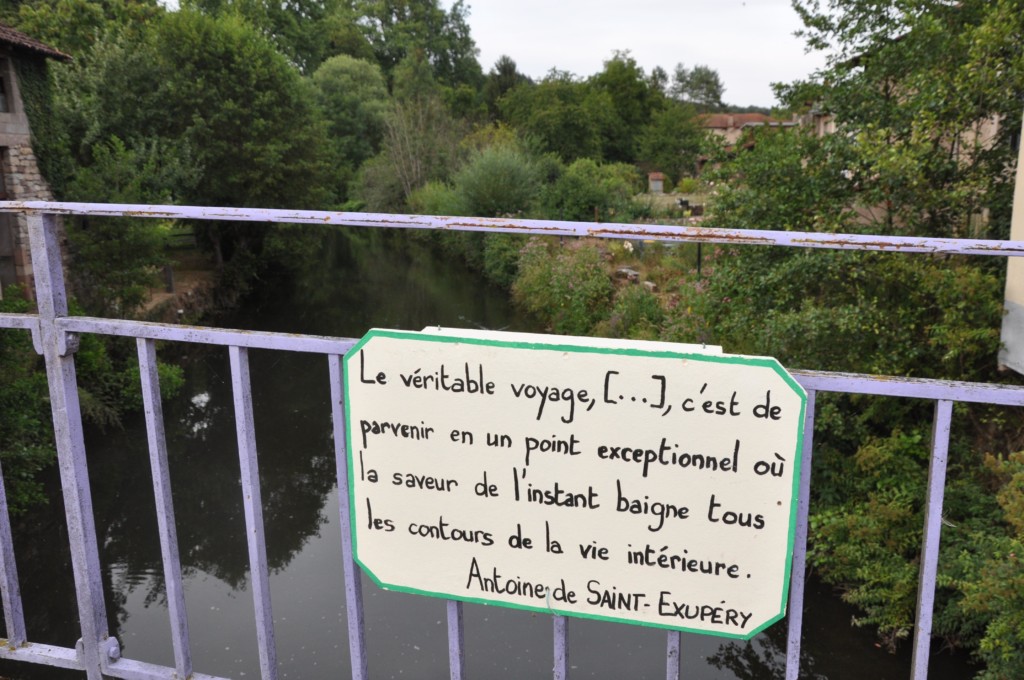 Le véritable voyage, [...], c'est de
parvenir en un point exceptionnel où
la saveur de l'instant baigne tous
les contours de la vie intérieure.
Antoine de SAINT-EXUPÉRY